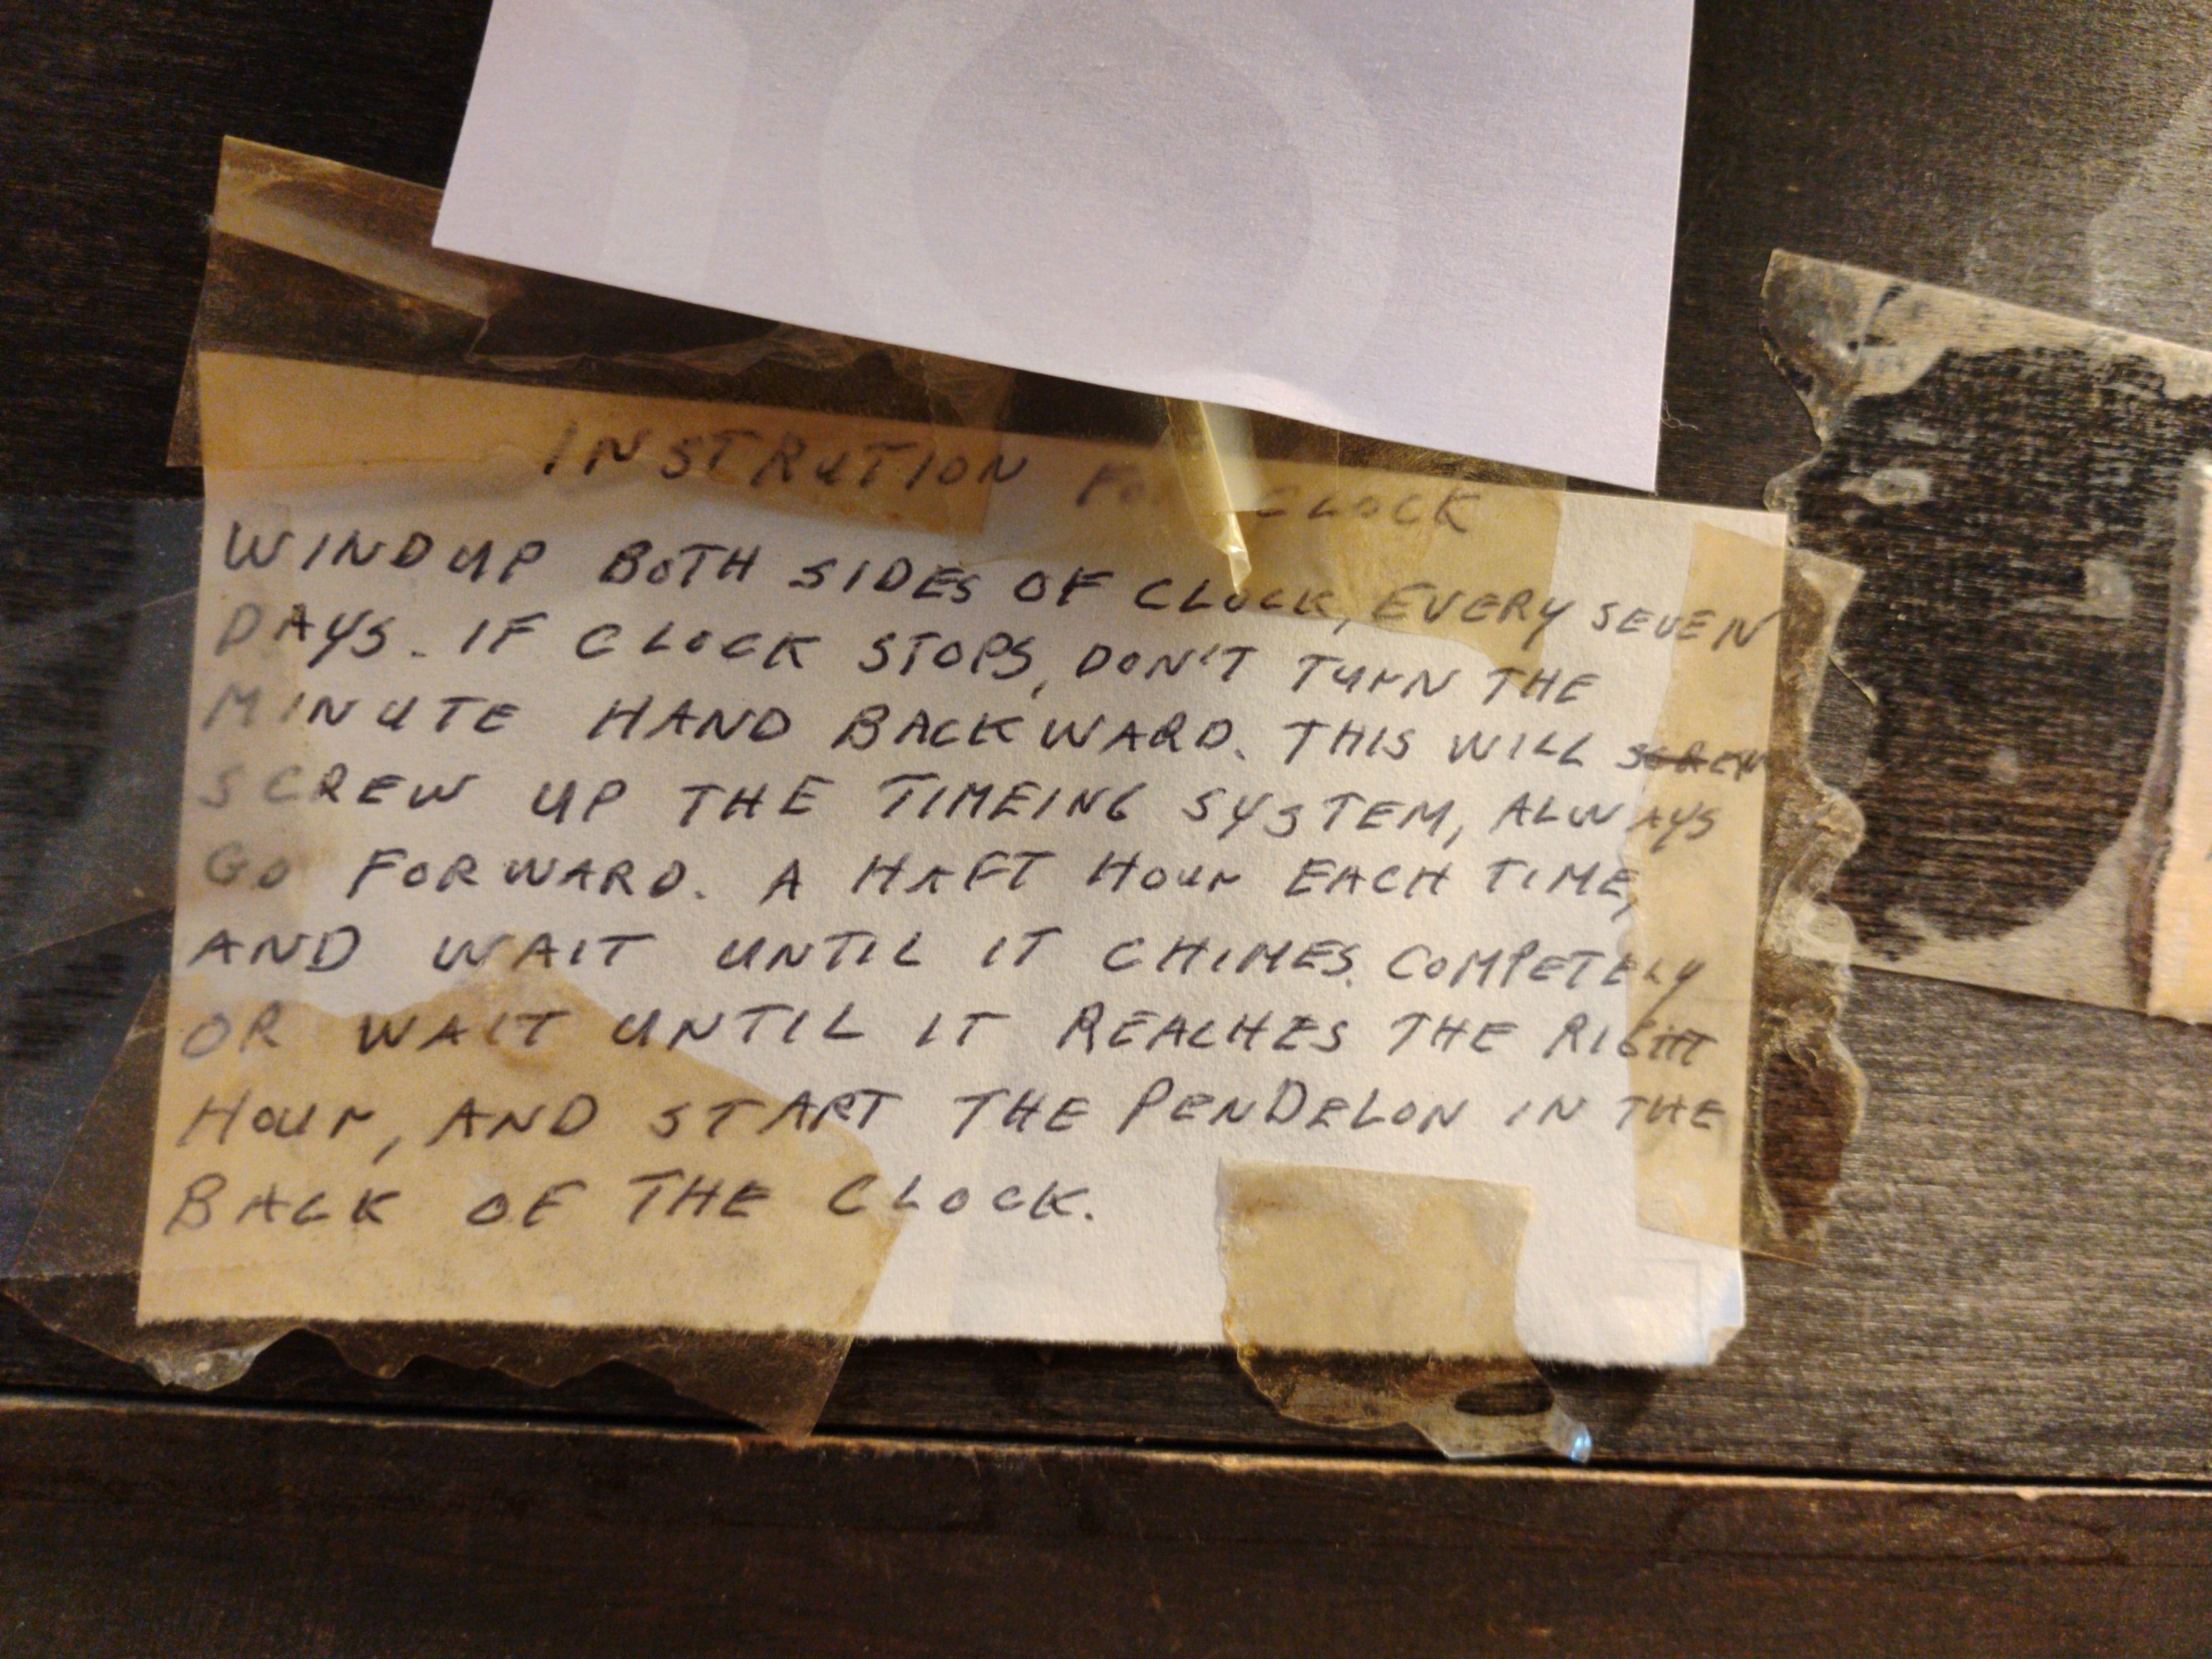 INSTRUTION FOR CLOCK
WINDUP BOTH SIDES OF CLOCK, EVERY SEVEN
DAYS. IF CLOCK STOPS, DON'T TURN THE
MINUTE HAND BACKWARD. THIS WILL SCREW
SCREW UP THE TIMEING SYSTEM, ALWAYS
GO FORWARD. A HAFT HOUR EACH TIME,
AND WAIT UNTIL IT CHIMES. COMPETELY
OR WAIT UNTIL IT REACHES THE RIGHT
HOUR, AND START THE PENDELON IN THE
BACK OF THE CLOCK.